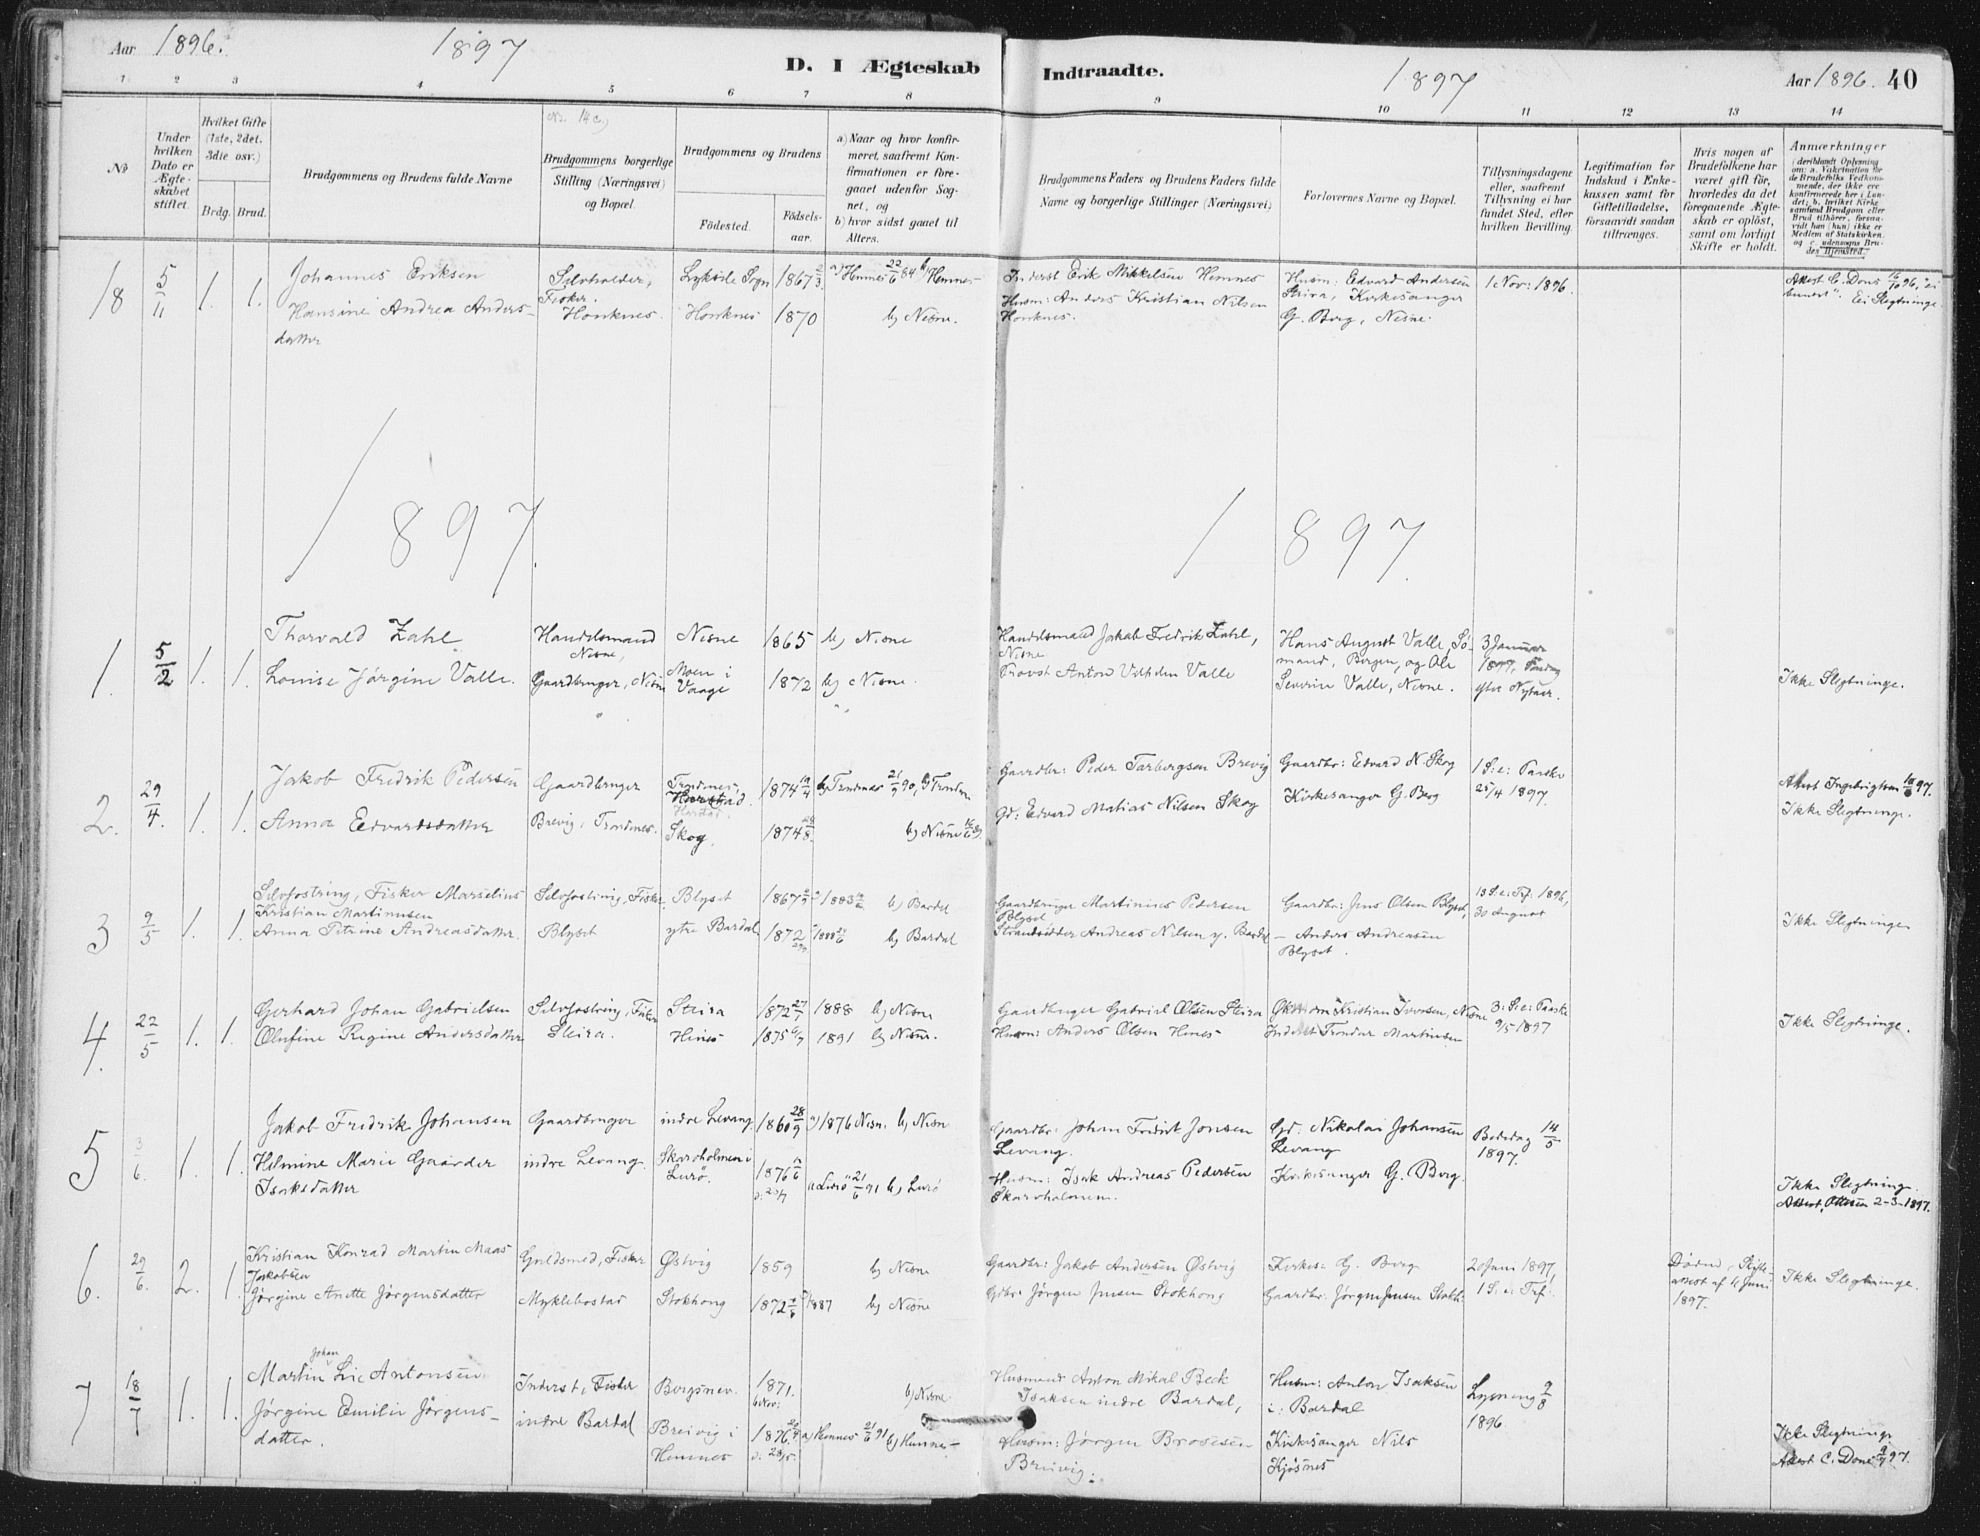 Aar 1896. 1897 D. I Ægteskab Indtraadte. 1897 Aar 1896. 40
1 2 3 4 5 6 7 8 9 10 11 12 13 14
No
Under hvilken Dato er Ægteskabet stiftet.
Hvilket Gifte (1ste, 2det, 3die osv.)
Brdg. Brud.
Brudgommens og Brudens fulde Navne
Brudgommens borgerlige Stilling (Næringsvei) og Bopæl.
Brudgommens og Brudens
Fødested. Fødselsaar.
a) Naar og hvor konfirmeret, saafremt Konfirmationen er foregaaet udenfor Sognet, og
b) hvor sidst gaaet til Alters.
Brudgommens Faders og Brudens Faders fulde Navne og borgerlige Stillinger (Næringsvei)
Forlovernes Navne og Bopæl.
Tillysningsdagene eller, saafremt Tillysning ei har fundet Sted, efter hvilken Bevilling.
Legitimation for Indskud i Enkekassen samt for Giftetilladelse, forsaavidt saadan tiltrænges.
Hvis nogen af Brudefolkene har været gift før, hvorledes da det foregaaende Ægteskab er opløst, samt om lovligt Skifte er holdt.
Anmærkninger
18 5/11 1. 1. Johannes Eriksen
Hansine Andrea Andersdatter
Selvholder, Fisker. Honknes.
Honknes 1870
1867 2/3
a) Hemnes 22/6 84 b) Hemnes
b) Nesne.
Inderst Erik Mikkelsen Hemnes
Husm: Anders Kristian Nilsen Honknes.
Husm: Edvard Andersen Stiva, Kirkesanger G. Berg, Nesne.
1 Nov: 1896.
Ei Slegtninge
1897 1897.
1. 5/2 1. 1. Thorvald Zahl
Louise Jørgine Valle.
Handelsmand Nesne,
Gaardbruger, Nesne
Nesne 1865 b) Nesne
Moen i Vaage 1872 b) Nesne.
Handelsmand Jakob Fredrik Zahl, Nesne
Provst Anton Vilhelm Valle
Hans August Valle, Sømand, Bergen, og Ole Severin Valle, Nesne.
3 Januar 1897, Søndag efter Nytaar.
Ikke Slegtninge.
2. 29/4. 1. 1. Jakob Fredrik Pedersen
Anna Edvardsdatter
Gaardbruger
Brevig, Trondenes.
Trondenes, Harstad.
Skog.
1874 19/4
1874 26/8.
b) Nesne
Gaardbr: Peder Tarbergsen Brevig
Gd: Edvard Mathias Nilsen Skog
Gaardbr: Edvard N. Skog
Kirkesanger G. Berg
1 S: e: Paaske 25/4 1897.
Attest Ingebrigtsen
Ikke Slegtninge.
3 9/5 1. 1. Selvfostring, Fisker Marselius Kristian Martinusen
Anna Petrine Andreasdatter.
Selvfostring, Fisker
Blyset
Blyset 1867
ytre Bardal 1872
1883 b) Bardal
1888 b) Bardal
Gaardbruger Martinus Pedersen Blyset
Strandsidder Andreas Nilsen y. Bardal
Gaardbr: Jens Olsen Blyset,
– Anders Andreasen Blyset.
13 S: e: Trf: 1896, 30 August
Ikke Slegtninge
4. 22/5 1. 1. Gerhard Johan Gabrielsen
Olufine Regine Andersdatter
Selvfostring, Fisker
Steira.
Steira 1872 27/7 1888 b) Nesne
Hines 1875 6/7 1891 b) Nesne.
Gaardbruger Gabriel Olsen Steira
Husm: Anders Olsen Hines
Kristian Iversen, Nesne
Inderst Trondar Martinusen
3: S: e: Paaske 9/5 1897
Ikke Slegtninge.
5 3/6. 1. 1. Jakob Fredrik Johansen
Helmine Marie Gaarder Isaksdatter
Gaardbruger
indre Levang.
indre Levang 1860 28/9 a) 1876 Nesn. b) Nesn
Skarvholmen i Lurø. 1876 a) Lurø 21/6 91 b) Lurø
Gaardbr: Johan Fredrik Jonsen Levang.
Husm: Isak Andreas Pedersen Skarvholmen.
Gd: Nikolai Johansen Levang
Kirkesanger G. Berg.
Bededag 14/5 1897.
Ikke Slegtninge.
Attest, Ottesen 2-3-1897.
6. 29/6. 2. 1. Kristian Konrad Martin Maas Jakobsen
Jørgine Anette Jørgensdatter
Guldsmed, Fisker
Myklebostad
Østvig 1859 b) Nesne
Stokhong 1872 1887 b) Nesne
Gaardbr: Jakob Andersen Østvig
Gdbr: Jørgen Jensen Stokhong
Kirkes: G. Berg
Gaardbr: Jørgen Jensen Stokh:
20 Juni 1897, 1 S: e: Trf:
Døden, Skifteattest af Juni 1897.
Ikke Slegtninge.
7 18/7 1. 1. Martin Johan Lie Antonsen
Jørgine Emilie Jørgensdatter.
Inderst, Fisker
indre Bardal
Borgsnev. 1871. 6 Nov: b) Nesne
Breivig i Hemnes 1876. a) Hemnes 21/6 91 b) Hemnes
Husmand Anton Mikal Beck Isaksen indre Bardal,
Husm: Jørgen Brosesen Breivig.
Husm: Anton Isaksen i: Bardal
Kirkesanger Nils Kjøsnes
Lysning 9/8 1896.
Ikke Slegtninge
Attest C. Dons 97.